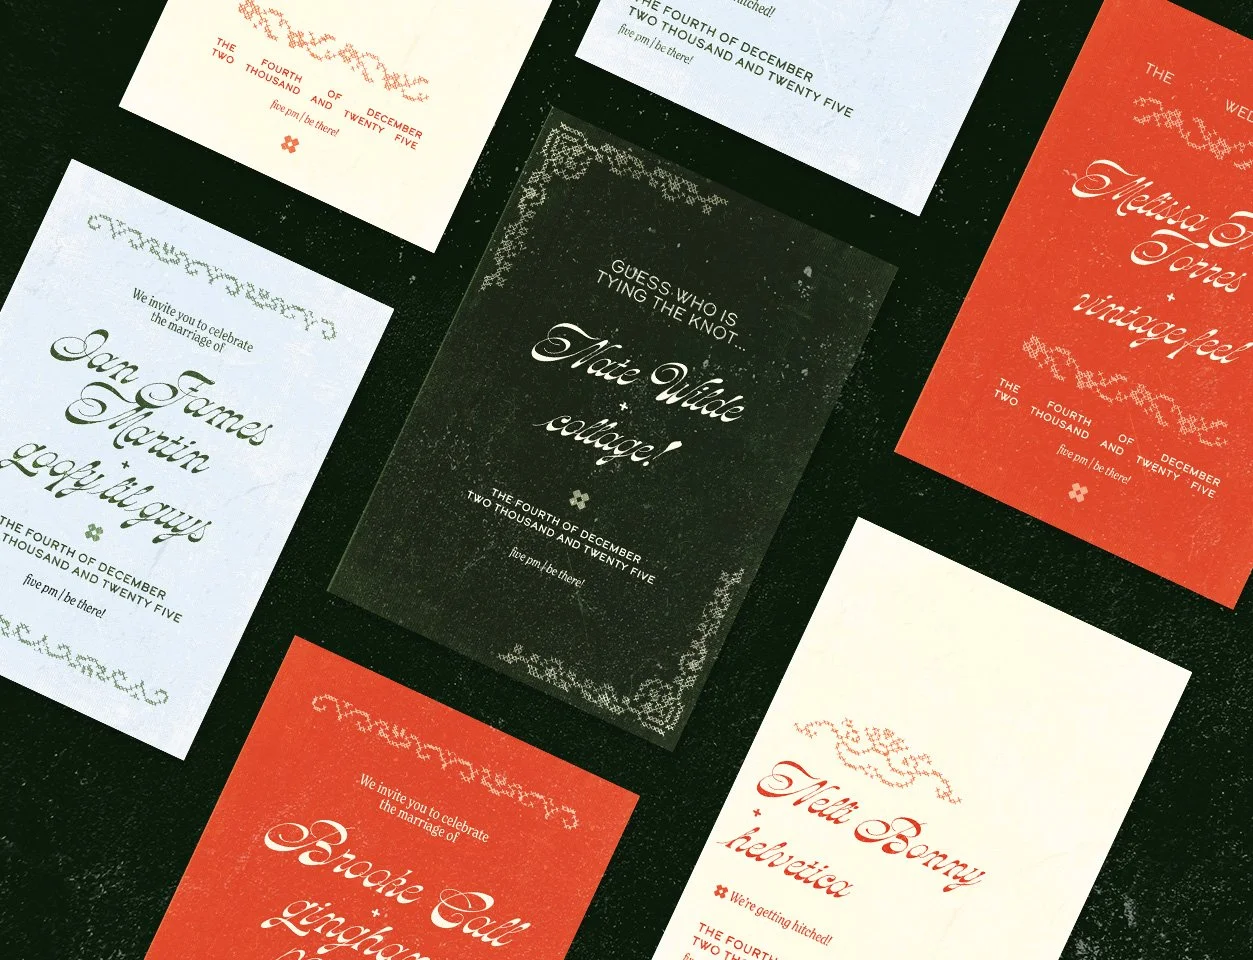 THE FOURTH OF DECEMBER
TWO THOUSAND AND TWENTY FIVE
five pm / be there!
hitched!
THE FOURTH OF DECEMBER
TWO THOUSAND AND TWENTY FIVE
five pm / be there!
THE
Melissa
Torres
+
vintage feel
THE FOURTH OF DECEMBER
TWO THOUSAND AND TWENTY FIVE
five pm / be there!
We invite you to celebrate
the marriage of
Ian James
Martin
+
goofy lil guys
THE FOURTH OF DECEMBER
THOUSAND AND TWENTY FIVE
five pm / be there!
GUESS WHO IS
TYING THE KNOT...
Nate Wilde
+
collage!
THE FOURTH OF DECEMBER
TWO THOUSAND AND TWENTY FIVE
five pm / be there!
We invite you to celebrate
the marriage of
Brooke Call
+
Nelli Bonny
+
helvetica
We're getting hitched!
THE FOURTH
TWO THOUSAND